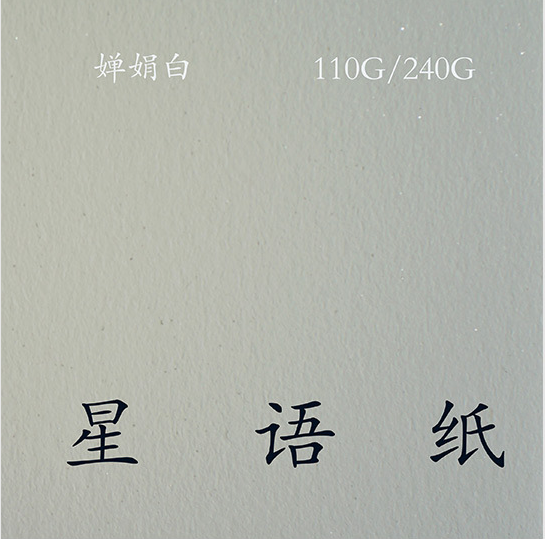 婵娟白 110G/240G
星语纸